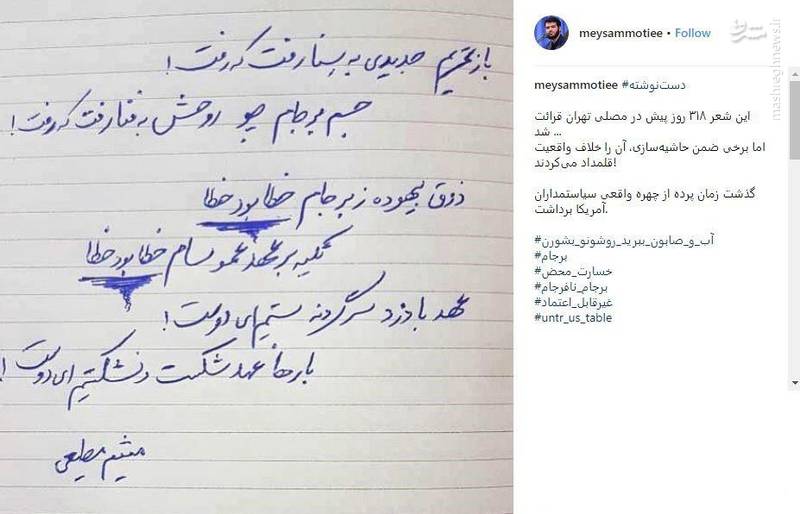 باز تحریم جدیدی به سنا رفت که رفت!
جسم برجام چو روحش به فنا رفت که رفت!
ذوق بیهوده ز برجام خطا بود خطا
تکیه بر عهد عمو سام خطا بود خطا
عهد با دزد سر گردنه بستیم ای دوست!
بارها عهد شکست و نشکستیم ای دوست!
میثم مطیعی
meysammotiee • Follow
meysammotiee #دست‌نوشته
این شعر ۳۱۸ روز پیش در مصلی تهران قرائت
شد ...
اما برخی ضمن حاشیه‌سازی، آن را خلاف واقعیت
قلمداد می‌کردند!
گذشت زمان پرده از چهره واقعی سیاستمداران
آمریکا برداشت.
#آب_و_صابون_ببرید_روشونو_بشورن
#برجام
#خسارت_محض
#برجام_نافرجام
#غیرقابل_اعتماد
#untr_us_table
mashreghnews.ir